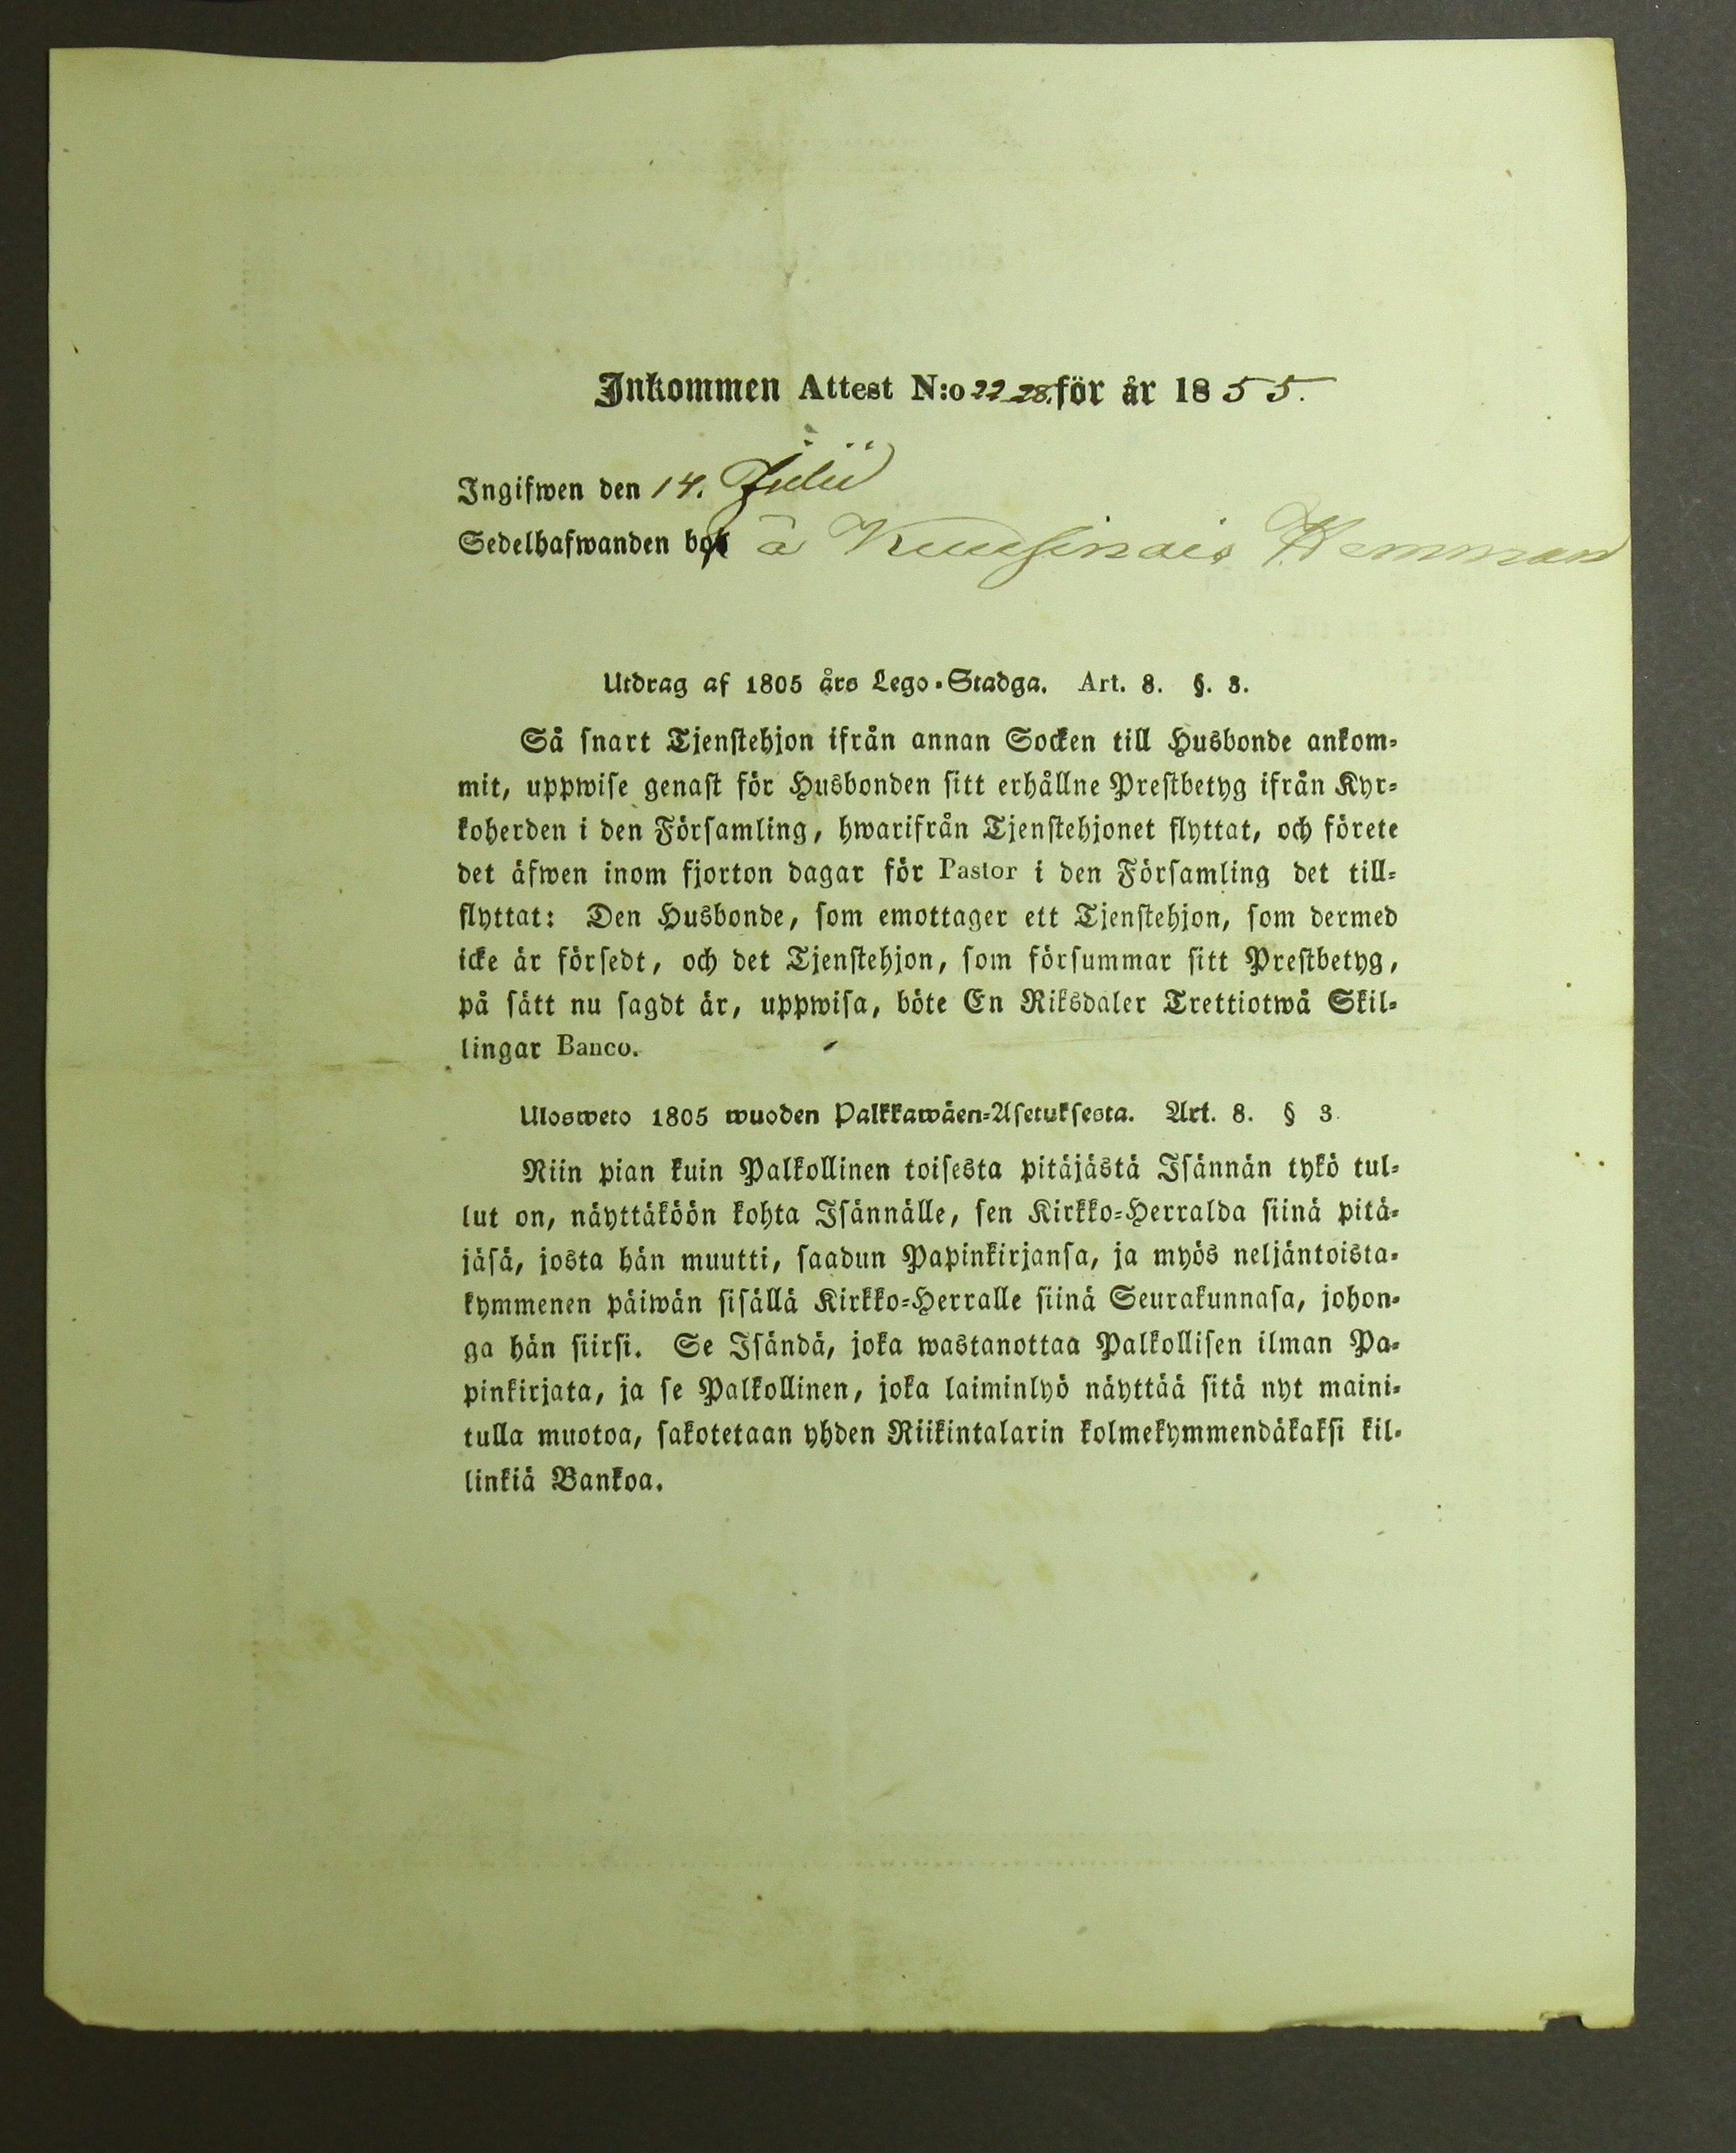 Inkommen Attest N:o 22_28. för år 1855.
Ingifwen den 14. Julii
Sedelhafwanden bor å Kuusinais Hemman
Utdrag af 1805 års Lego-Stadga. Art. 8. §. 3.
Så snart Tjenstehjon ifrån annan Socken till Husbonde ankom-
mit, uppwise genast för Husbonden sitt erhållne Prestbetyg ifrån Kyr-
koherden i den Församling, hwarifrån Tjenstehjonet flyttat, och förete
det äfwen inom fjorton dagar för Pastor i den Församling det till-
flyttat: Den Husbonde, som emottager ett Tjenstehjon, som dermed
icke är försedt, och det Tjenstehjon, som försummar sitt Prestbetyg,
på sätt nu sagdt är, uppwisa, böte En Riksdaler Trettiotwå Skil-
lingar Banco.
Ulosweto 1805 wuoden Palkkawäen-Asetuksesta. Art. 8. § 3.
Niin pian kuin Palkollinen toisesta pitäjästä Isännän tykö tul-
lut on, näyttäköön kohta Isännälle, sen Kirkko-Herralda siinä pitä-
jäsä, josta hän muutti, saadun Papinkirjansa, ja myös neljäntoista-
kymmenen päiwän sisällä Kirkko-Herralle siinä Seurakunnasa, johon-
ga hän siirsi. Se Isändä, joka wastanottaa Palkollisen ilman Pa-
pinkirjata, ja se Palkollinen, joka laiminlyö näyttää sitä nyt maini-
tulla muotoa, sakotetaan yhden Riikintalarin kolmekymmendäkaksi kil-
linkiä Bankoa.